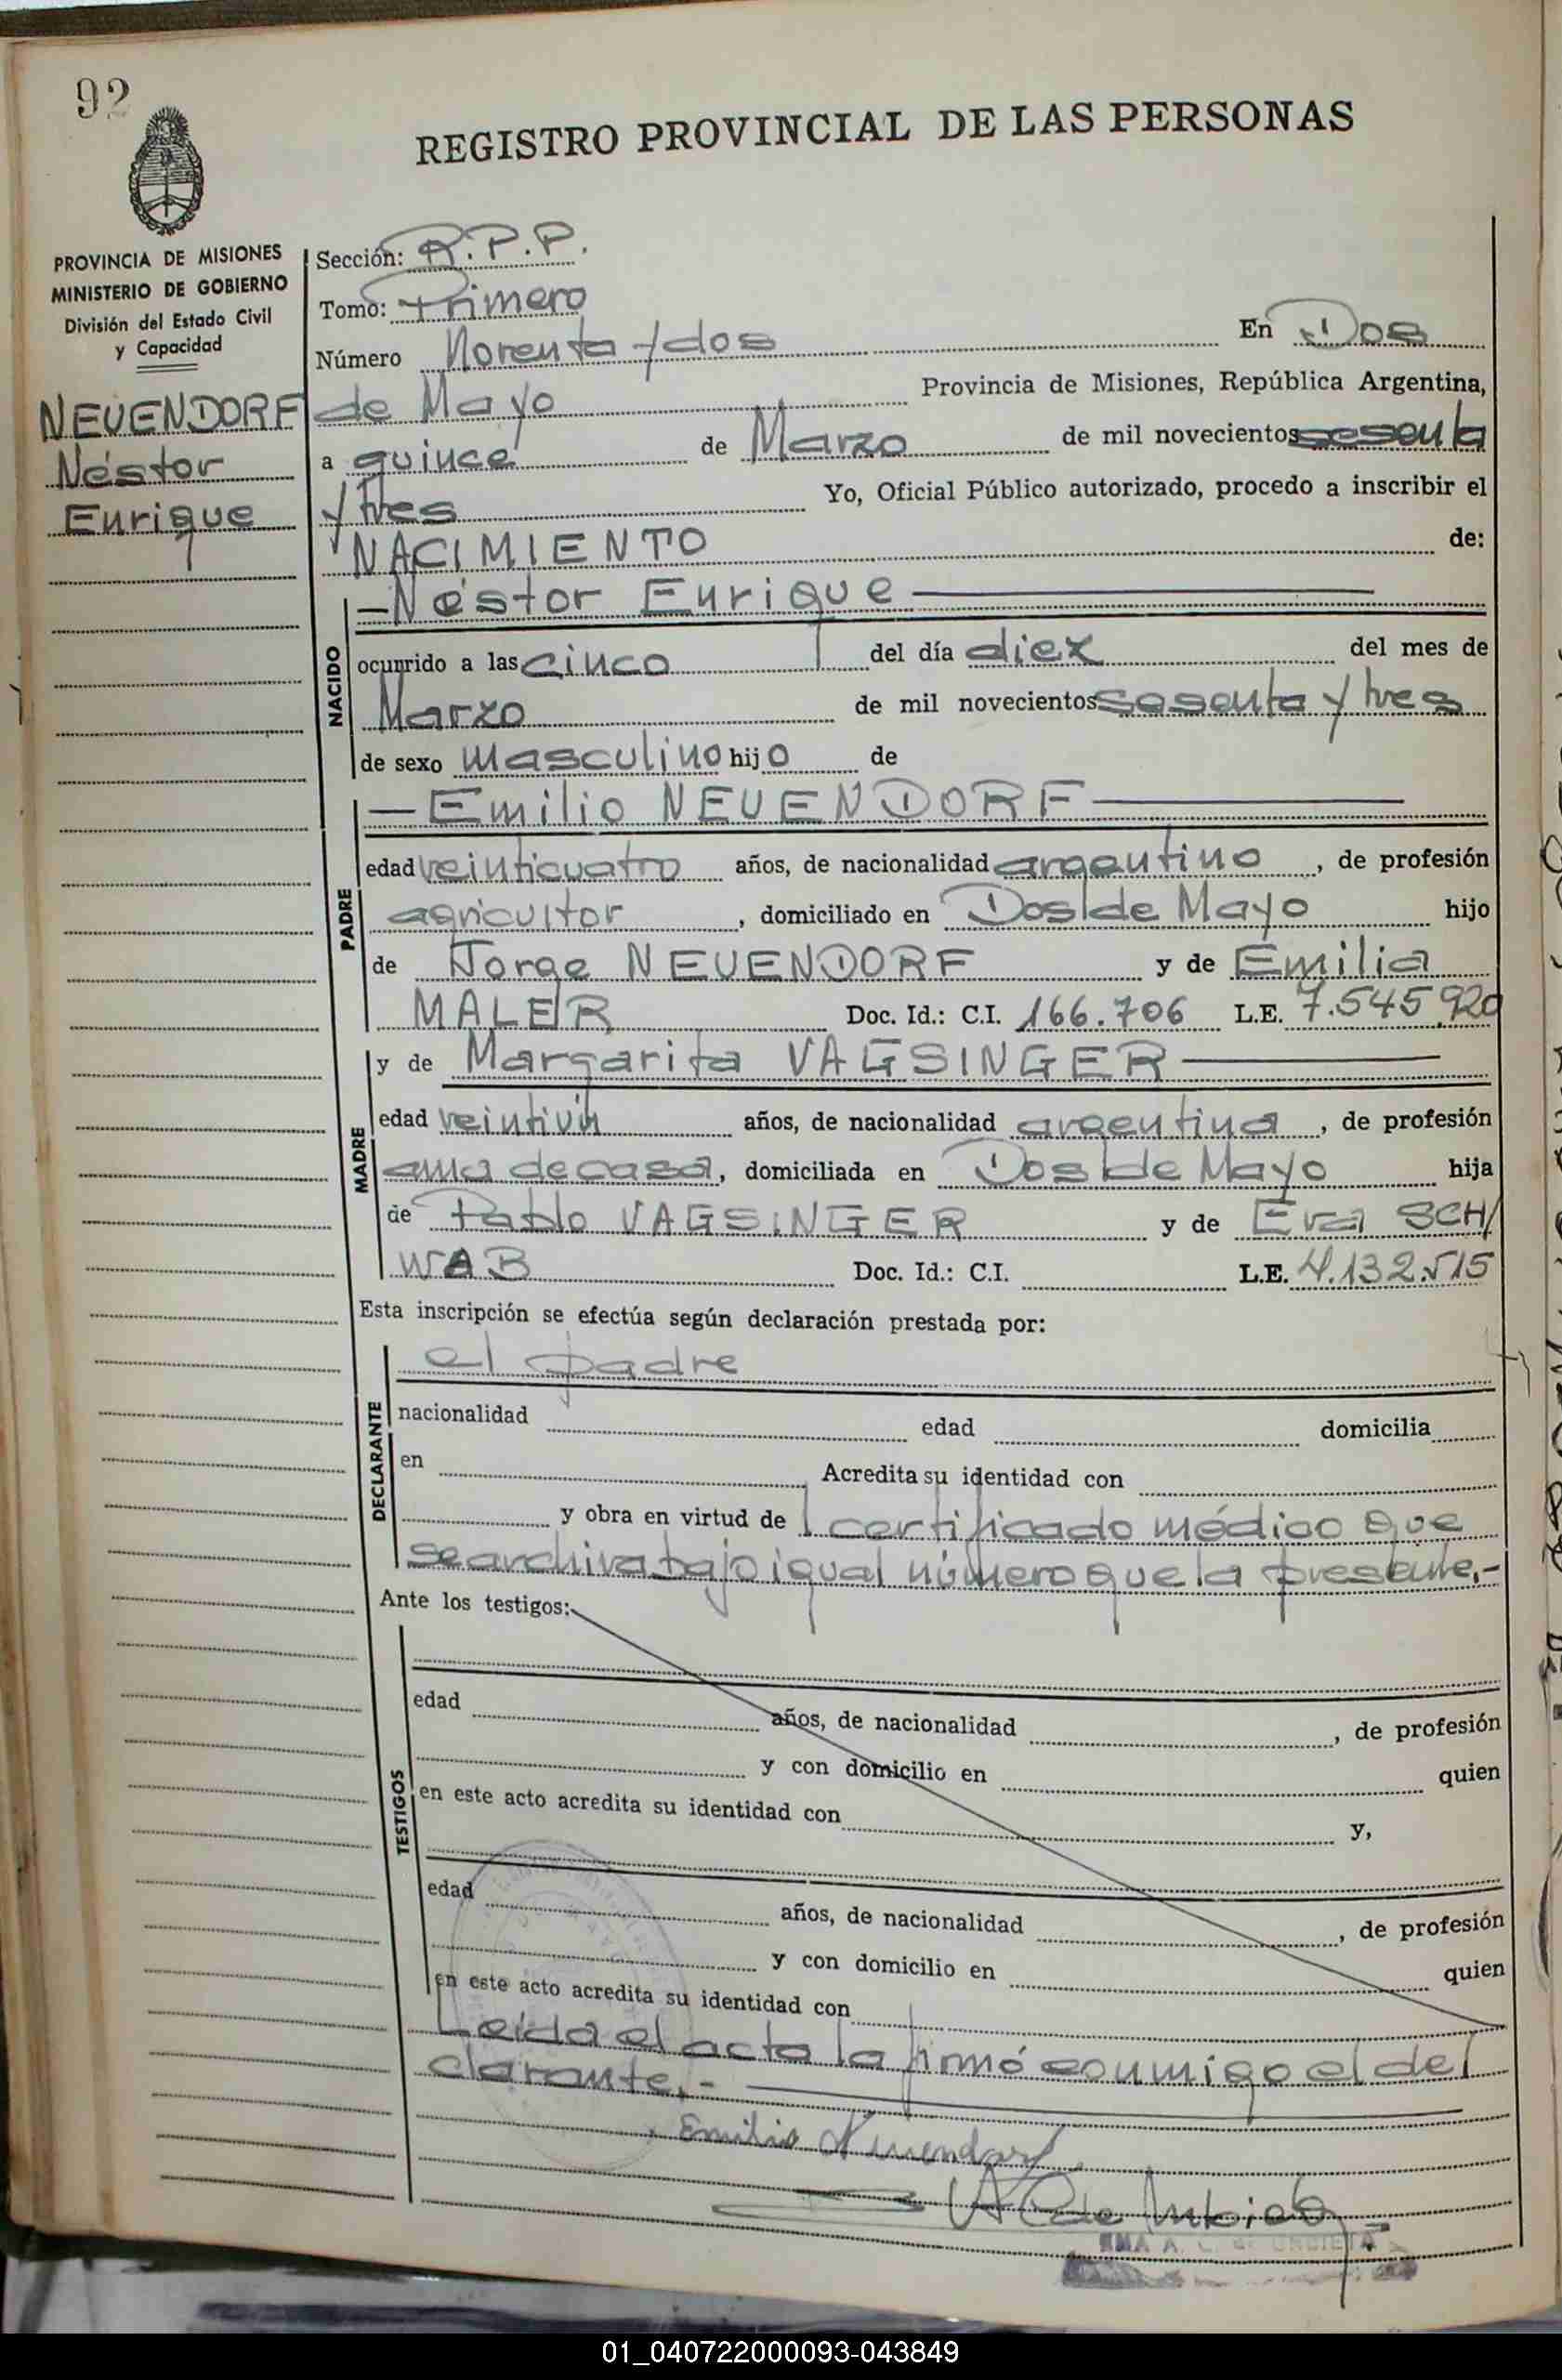 92
REGISTRO PROVINCIAL DE LAS PERSONAS
PROVINCIA DE MISIONES
MINISTERIO DE GOBIERNO
División del Estado Civil
y Capacidad
NEUENDORF
Néstor
Enrique
Sección: R.P.P.
Tomo: Primero
Número Noventa y dos En Dos
de Mayo Provincia de Misiones, República Argentina,
a quince de Marzo de mil novecientos sesenta
y tres Yo, Oficial Público autorizado, procedo a inscribir el
NACIMIENTO de:
NACIDO
—Néstor Enrique—
ocurrido a las cinco del día diez del mes de
Marzo de mil novecientos sesenta y tres
de sexo masculino hijo de
PADRE
—Emilio NEUENDORF—
edad veinticuatro años, de nacionalidad argentino, de profesión
agricultor, domiciliado en Dos de Mayo hijo
de Jorge NEUENDORF y de Emilia
MALER Doc. Id.: C.I. 166.706 L.E. 7.545.920
MADRE
y de Margarita VAGSINGER—
edad veintiún años, de nacionalidad argentina, de profesión
ama de casa, domiciliada en Dos de Mayo hija
de Pablo VAGSINGER y de Eva SCH/
WAB Doc. Id.: C.I. L.E. 4.132.515
Esta inscripción se efectúa según declaración prestada por:
DECLARANTE
el padre
nacionalidad edad domicilia
en Acredita su identidad con
y obra en virtud de certificado médico que
se archiva bajo igual número que la presente.-
Ante los testigos:
TESTIGOS
edad años, de nacionalidad , de profesión
y con domicilio en quien
en este acto acredita su identidad con y,
edad años, de nacionalidad , de profesión
y con domicilio en quien
en este acto acredita su identidad con
Leída el acta la firmó conmigo el de/
clarante.-
Emilio Neuendorf
A. C. de URBIETA
01_040722000093-043849